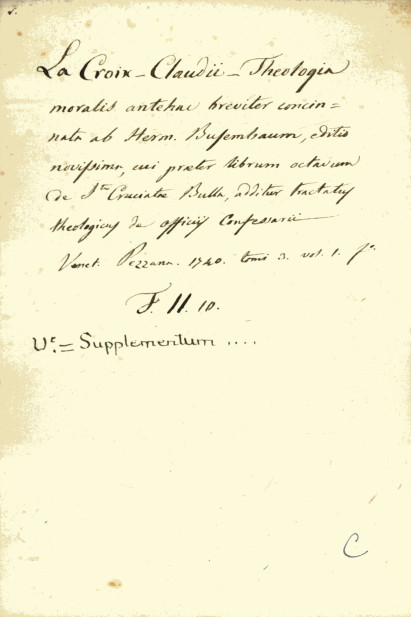 La Croix - Claudii - Theologia
moralis antehac breviter concin=
nata ab Herm. Busembaum, editio
novissima, cui præter librum octavum
de Stæ Cruciatæ Bulla, additur tractatus
theologicus de officiis Confessarii
Venet. Pezzana. 1740. tomi 3. vol. 1. fo.
F. 11. 10.
Ve. = Supplementum ....
C